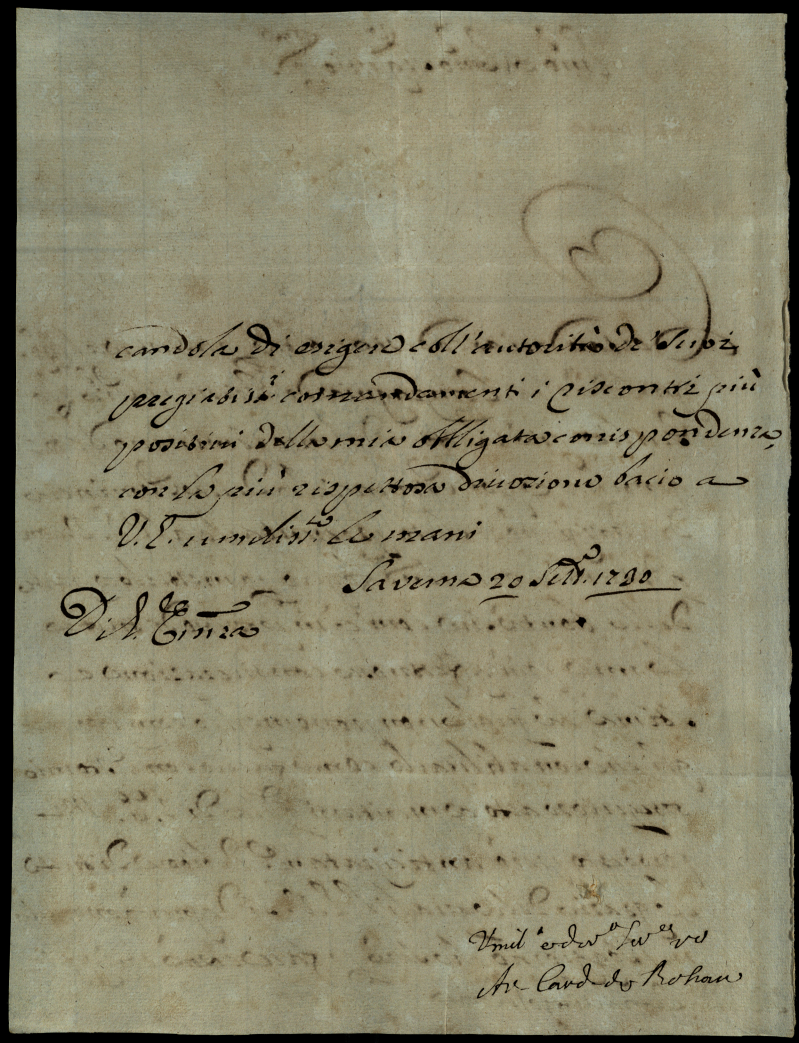 candola di esigere coll'autorità de' Suoi
pregiatis.mi comandamenti i riscontri più
positivi della mia obbligata corrispondenza,
con la più rispettosa divozione bacio a
V. E. umiliss.te le mani
Saverna 20 Sett.e 1780
Di V. Emza
Umil.o e dev.o Ser.re vo
Ar Card de Rohan